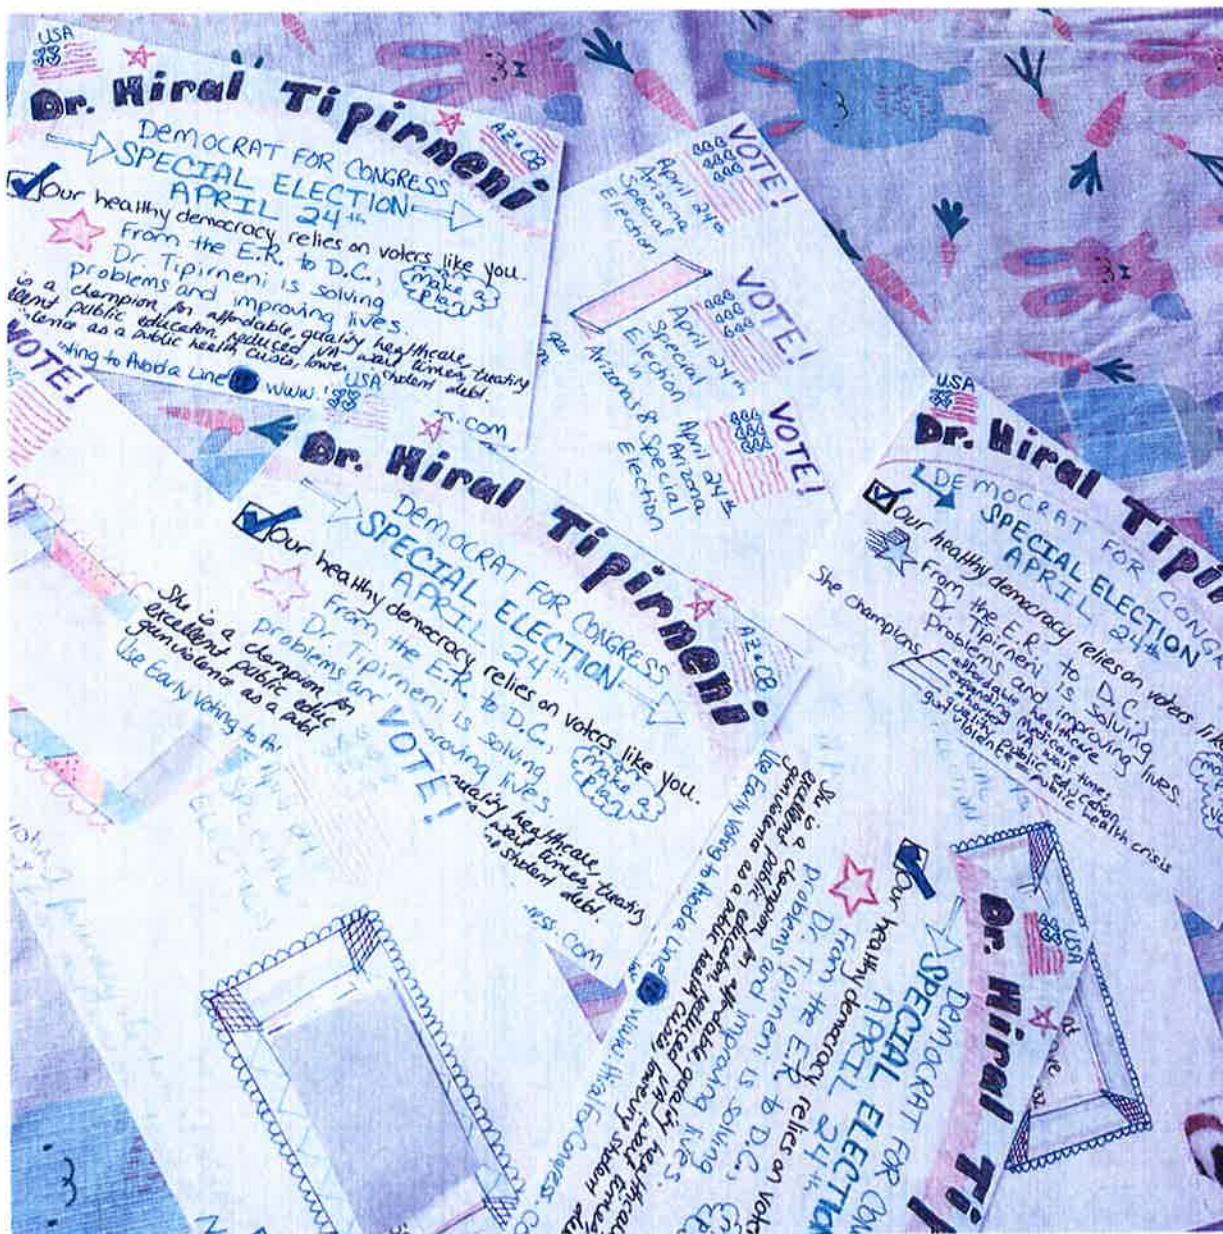 USA
Dr. Hiral Tipirneni
AZ • 08
DEMOCRAT FOR CONGRESS
SPECIAL ELECTION
APRIL 24th
Our healthy democracy relies on voters like you.
From the E.R. to D.C.,
Dr. Tipirneni is solving
problems and improving lives.
make a
plan
is a champion for affordable, quality healthcare,
public education, reduced VA wait times, treating
as a public health crisis, lower student debt.
ting to Avoid a Line
www.
.com
VOTE!
April 24th
Arizona
Special
Election
VOTE!
April 24th
Special
Election
in
Arizona's 8
VOTE!
April 24th
Arizona
Special
Election
VOTE!
USA
Dr. Hiral Tipirneni
AZ • 08
DEMOCRAT FOR CONGRESS
SPECIAL ELECTION
APRIL 24th
Our healthy democracy relies on voters like you.
From the E.R. to D.C.,
Dr. Tipirneni is solving
problems and improving lives.
make a
plan
quality healthcare,
wait times, treating
student debt.
ess.com
She is a champion for
excellent public educ
gun violence as a publ
Use Early Voting to Av
VOTE!
USA
Dr. Hiral Tipi
DEMOCRAT FOR CONGR
SPECIAL ELECTION
APRIL 24th
Our healthy democracy relies on voters like
From the E.R. to D.C.,
Dr. Tipirneni is solving
Problems and improving lives.
She champions
affordable healthcare
expanding medicare
shorter VA wait times
quality public education
gun violence as a public health crisis
USA
Dr. Hiral Ti
DEMOCRAT FOR CON
SPECIAL ELECTIO
APRIL 24th
Our healthy democracy relies on vote
From the E.R. to D.C.,
Dr. Tipirneni is solving
problems and improving lives.
She is a champion for affordable, quality healthcare
excellent public education, reduced VA wait times
gun violence as a public health crisis, lowering student de
Use Early Voting to Avoid a Line
www.HiralForCongress.co